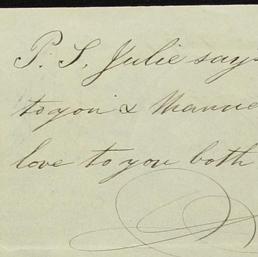 P. S. Julie say
to you & Mannie
love to you both